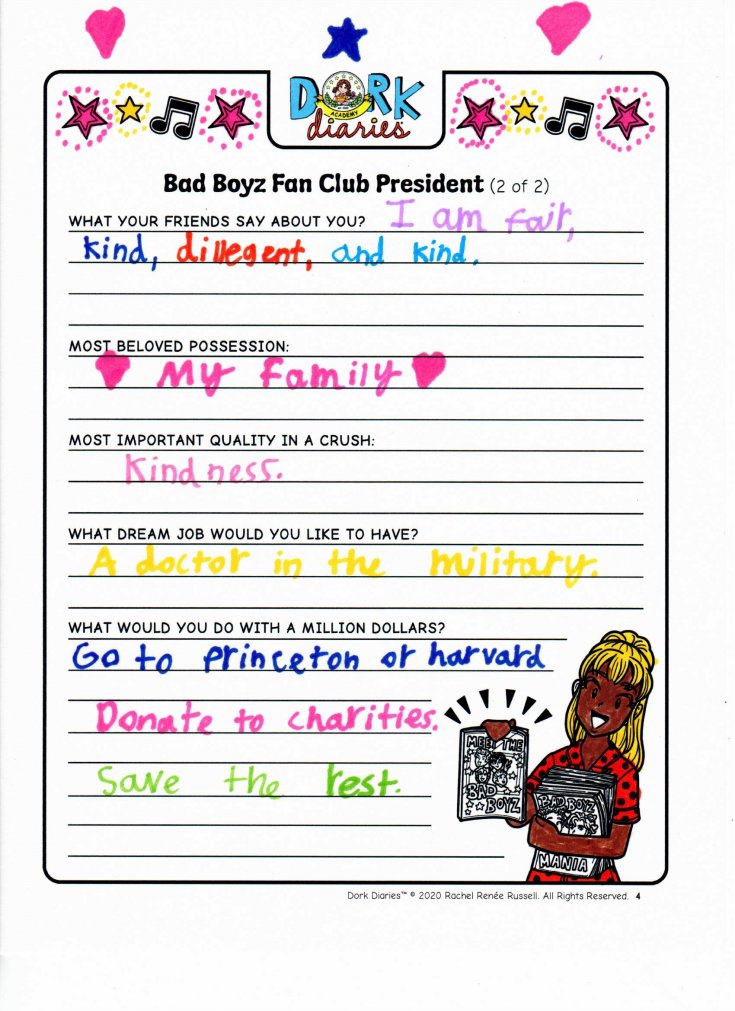 DORK
ACADEMY
diaries
Bad Boyz Fan Club President (2 of 2)
WHAT YOUR FRIENDS SAY ABOUT YOU? I am fair,
kind, dillegent, and kind.
MOST BELOVED POSSESSION:
My family
MOST IMPORTANT QUALITY IN A CRUSH:
Kindness.
WHAT DREAM JOB WOULD YOU LIKE TO HAVE?
A doctor in the military.
WHAT WOULD YOU DO WITH A MILLION DOLLARS?
Go to princeton or harvard
Donate to charities.
Save the rest.
MEET THE
BAD
BOYZ
BAD BOYZ
MANIA
Dork Diaries™ © 2020 Rachel Renée Russell. All Rights Reserved. 4